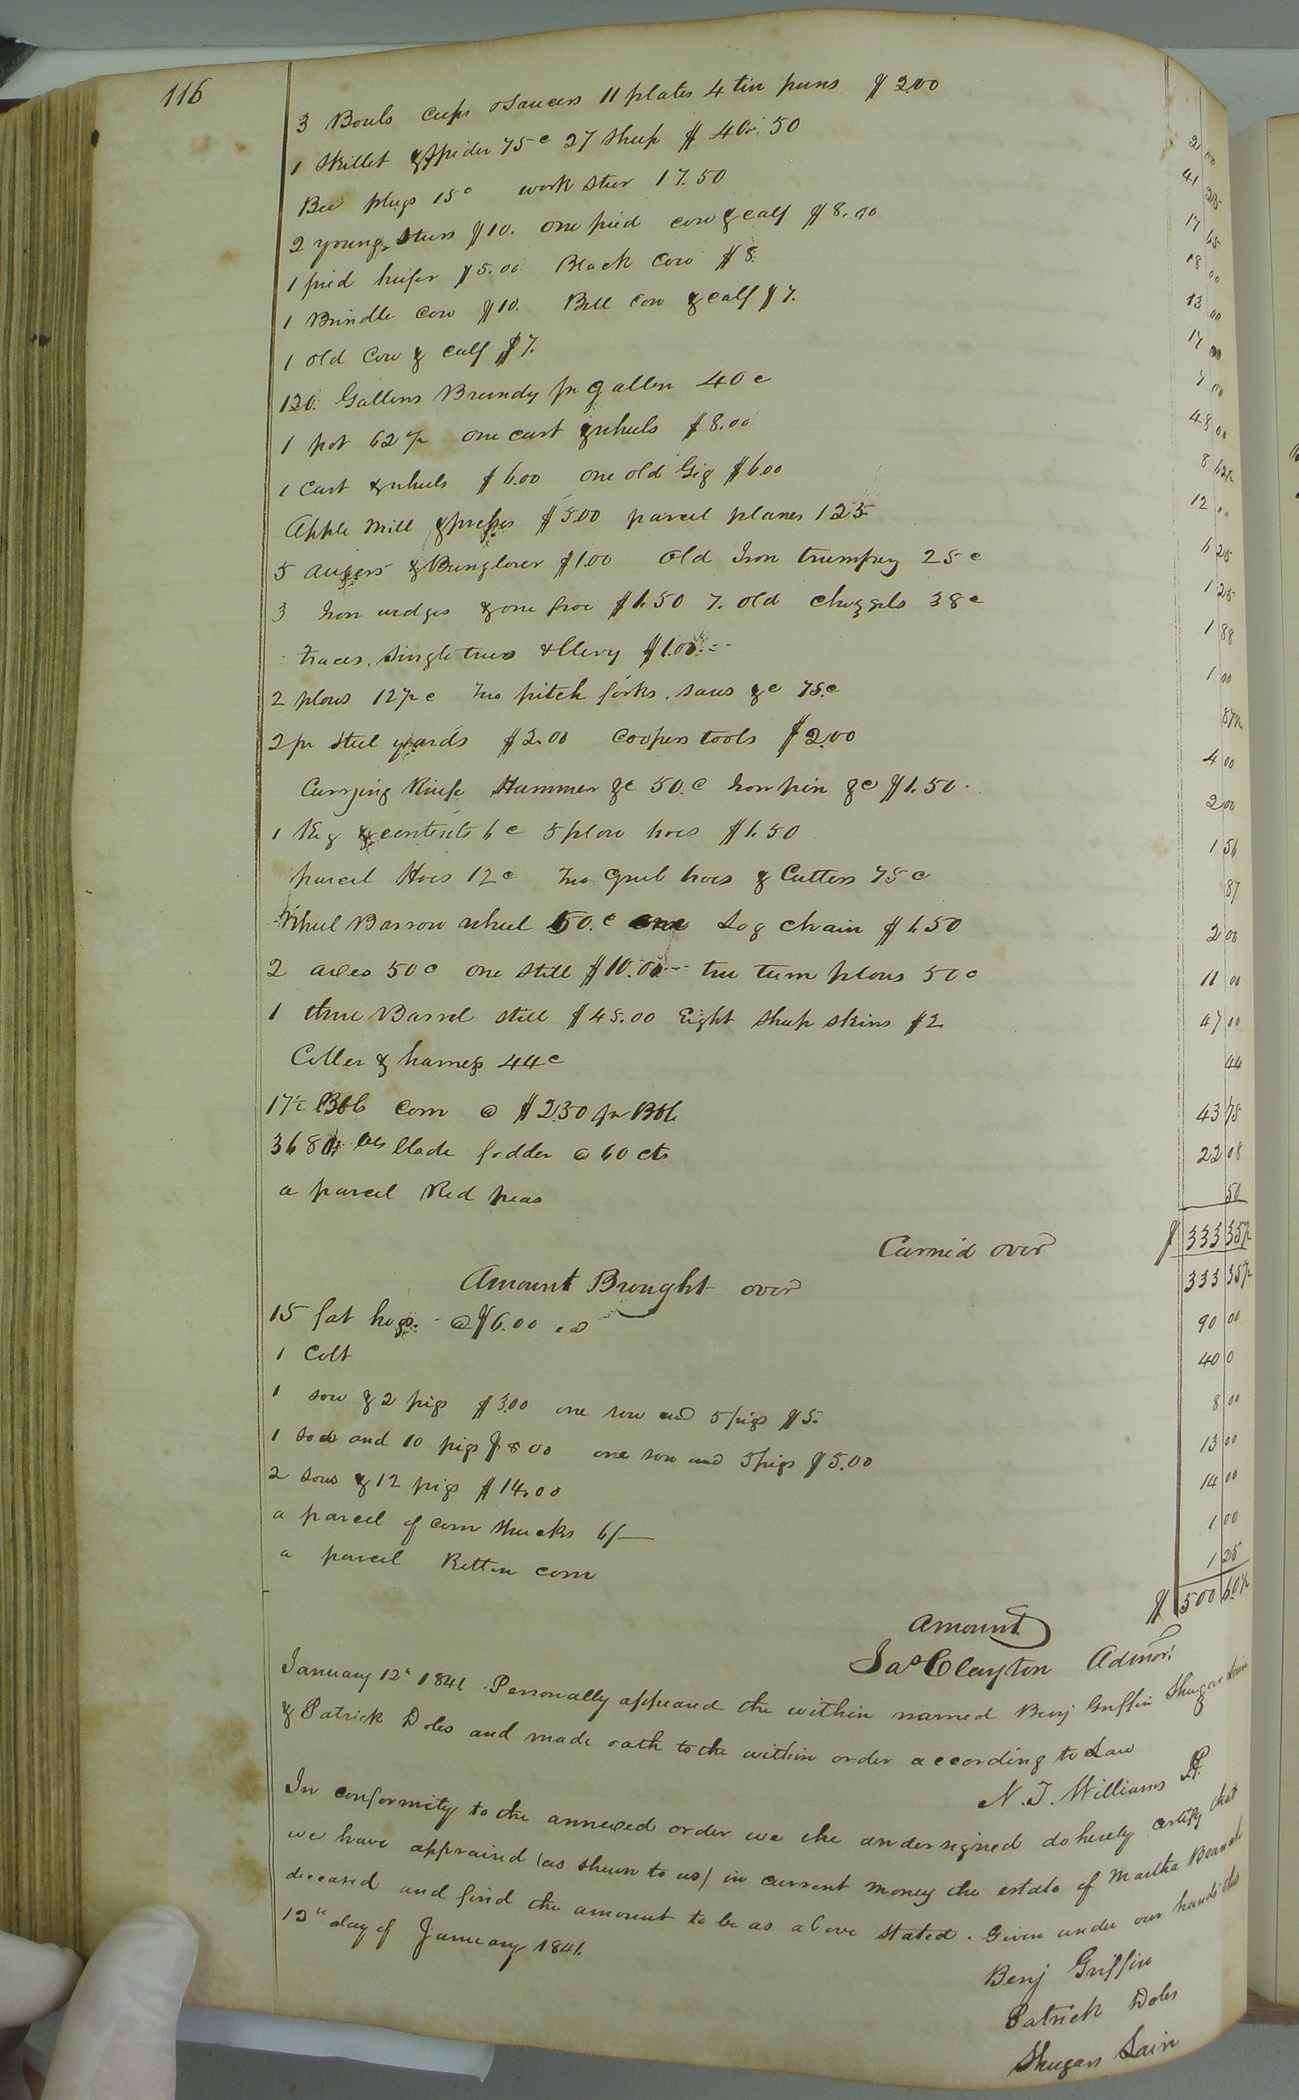 116
3 Bouls cups & Saucers 11 plates 4 tin pans $2.00 2 00
1 Skillet & spider 75c 27 Sheep $40.50 41 25
Bee plugs 15c work steer 17.50 17 65
2 young Steers $10. one pied cow & calf $8.00 18 00
1 pied heifer $5.00 Black cow $8. 13 00
1 Brindle cow $10. Bell cow & calf $7. 17 00
1 old Cow & calf $7. 7 00
120 Gallons Brandy pr gallon 40c 48 00
1 pot 62½ one cart & wheels $8.00 8 62½
1 cart & wheels $6.00 one old Gig $6.00 12 00
Apple Mill & presses $5.00 parcel planes 125 6 25
5 augers & Bunglorer $1.00 old Iron trumpry 25c 1 25
3 Iron wedges & one froe $1.50 7. old chizzels 38c 1 88
traces, singletrees & Clevy $1.00 1 00
2 plows 12½c two pitch forks, saws &c 75c 87½
2 pr Steel yards $2.00 Coopers tools $2.00 4 00
Currying Knife Hammer &c 50.c Iron pin &c $1.50 2 00
1 Keg & contents 6c 5 plow hoes $1.50 1 56
parcel Hoes 12c two Grub hoes & Cutters 75c 87
Wheel Barrow wheel 50.c one Log chain $1.50 2 00
2 axes 50c one Still $10.00 two turn plows 50c 11 00
1 three Barrel still $45.00 Eight Sheep skins $2 47 00
Coller & harness 44c 44
17½ Bbls corn @ $2.50 pr Bbl. 43 75
3680 lbs blade fodder @ 60 cts 22 08
a parcel Red peas 50
Carried over $ 333 35½
Amount Brought over 333 35½
15 fat hogs @ $6.00 ea 90 00
1 Colt 40 0
1 sow & 2 pigs $3.00 one sow and 5 pigs $5. 8 00
1 sow and 10 pigs $8 00 one sow and 5 pigs $5.00 13 00
2 sows & 12 pigs $14.00 14 00
a parcel of corn Shucks 6/— 1 00
a parcel Rotten corn 1 25
Amount $ 500 60½
Jas Clayton Admor.
January 12th 1841 Personally appeared the within named Benj Griffin Shugars Lain
& Patrick Doles and made oath to the within order according to Law
N. T. Williams J.P.
In conformity to the annexed order we the undersigned do hereby certify that
we have appraised (as shewn to us) in current money the estate of Martha
deceased and find the amount to be as above Stated. Given under our hands this
12th day of January 1841.
Benj Griffin
Patrick Doles
Shugars Lain